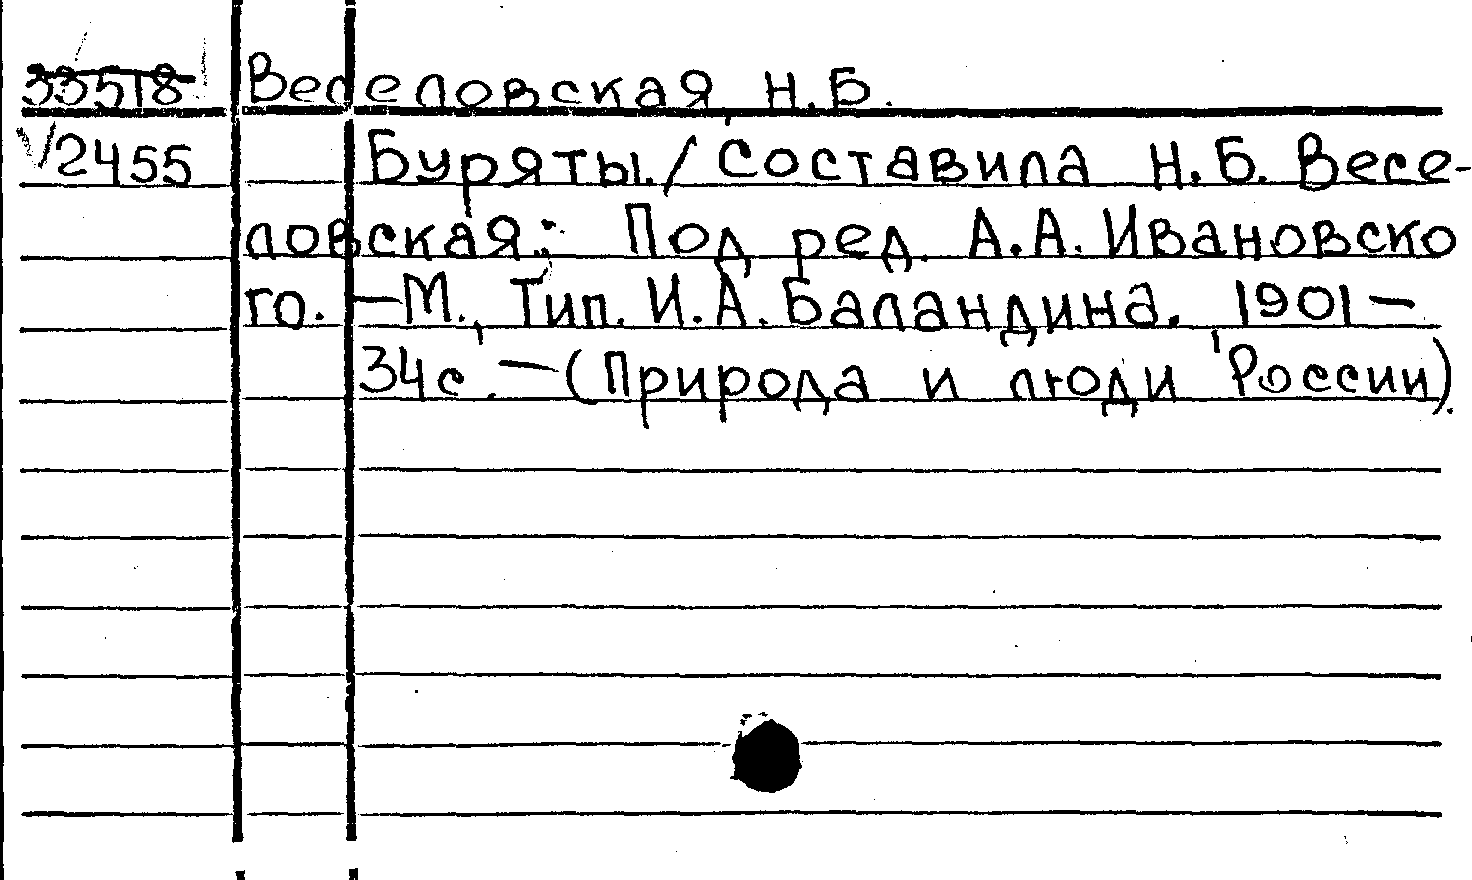 33518 Веселовская Н.Б.
√2455 Буряты./ Составила Н.Б. Весе-
ловская; Под ред. А.А. Ивановско
го. — М., Тип. И.А. Баландина. 1901 —
34с. — (Природа и люди России).